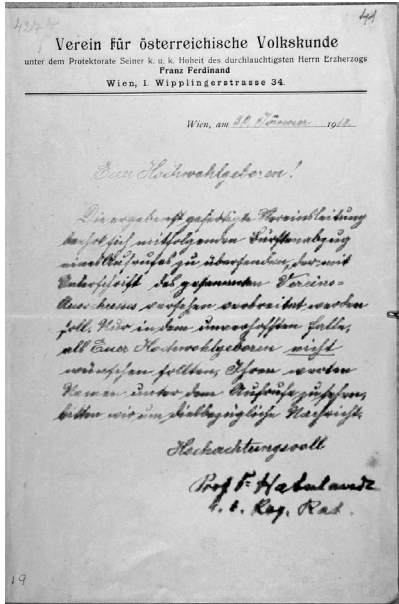 41
Verein für österreichische Volkskunde
unter dem Protektorate Seiner k. u. k. Hoheit des durchlauchtigsten Herrn Erzherzogs
Franz Ferdinand
Wien, I. Wipplingerstrasse 34.
Wien, am 30. Jänner 191
Euer Hochwohlgeboren!
Die ergebenst gefertigte Vereinsleitung
beehrt sich mitfolgenden Bürstenabzug
eines Aufrufes zu übersenden, der mit
Unterschrift des gesammten Vereins-
Ausschusses versehen verbreitet werden
soll. Nur in dem unverhofften Falle,
als Euer Hochwohlgeboren nicht
wünschen sollten, Ihren werten
Namen unter dem Aufrufe zu sehen,
bitten wir um diesbezügliche Nachricht.
Hochachtungsvoll
Prof Dr Haberlandt
k. k. Reg. Rat.
19